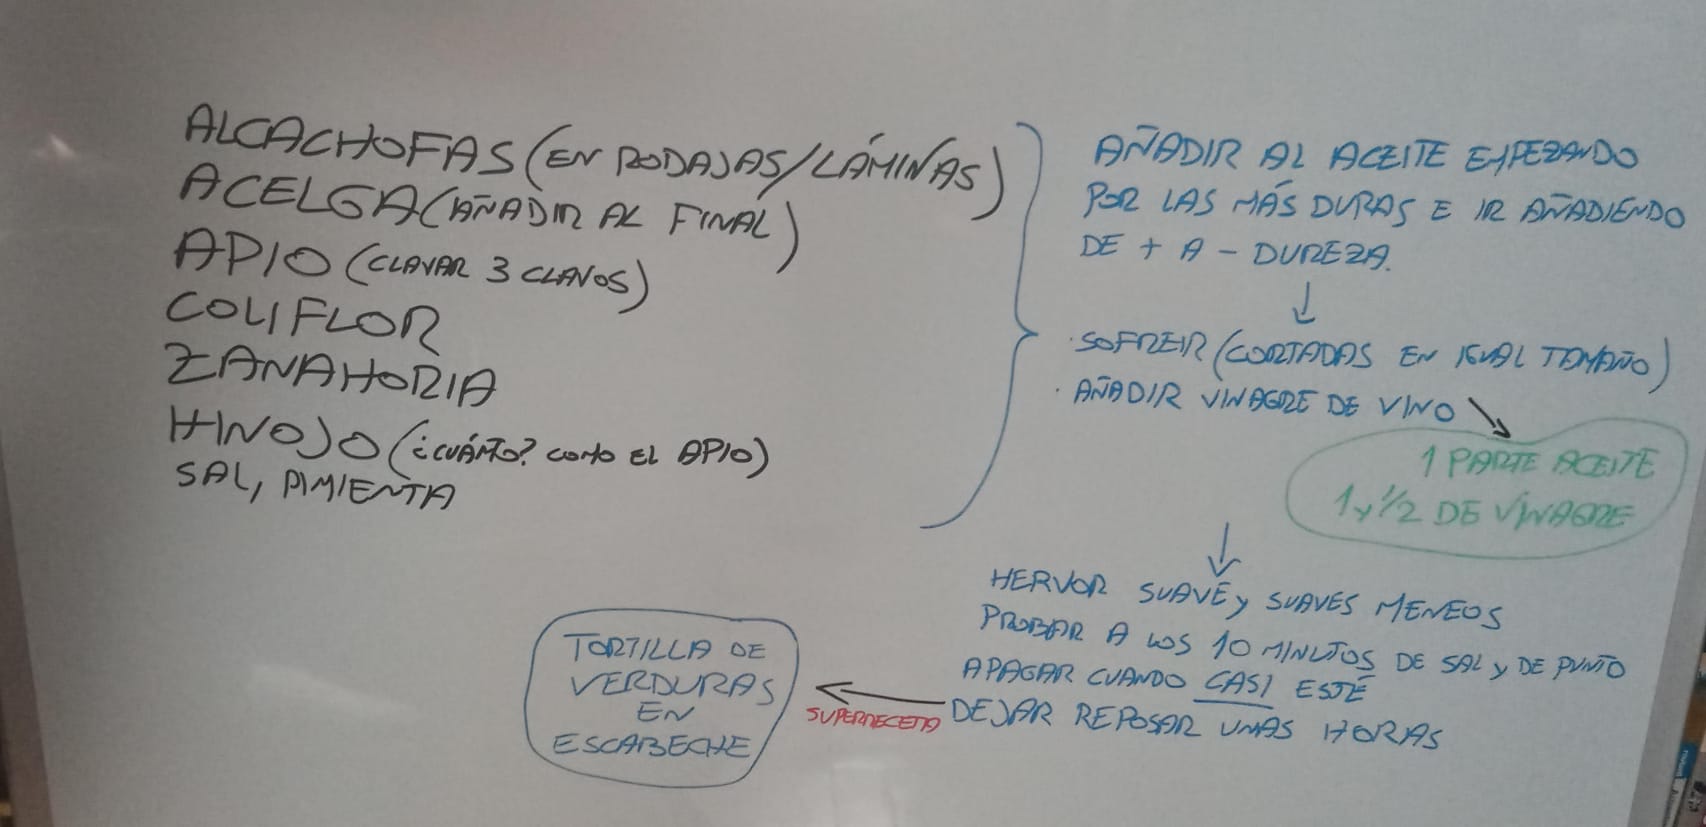 ALCACHOFAS (EN RODAJAS/LÁMINAS)
ACELGA (AÑADIR AL FINAL)
APIO (CLAVAR 3 CLAVOS)
COLIFLOR
ZANAHORIA
HINOJO (¿CUÁNTO? COMO EL APIO)
SAL, PIMIENTA
AÑADIR AL ACEITE EMPEZANDO
POR LAS MÁS DURAS E IR AÑADIENDO
DE + A - DUREZA.
· SOFREIR (CORTADAS EN IGUAL TAMAÑO)
· AÑADIR VINAGRE DE VINO
1 PARTE ACEITE
1 y 1/2 DE VINAGRE
HERVOR SUAVE y SUAVES MENEOS
PROBAR A LOS 10 MINUTOS DE SAL y DE PUNTO
APAGAR CUANDO CASI ESTÉ
DEJAR REPOSAR UNAS HORAS
SUPERRECETA
TORTILLA DE
VERDURAS
EN
ESCABECHE